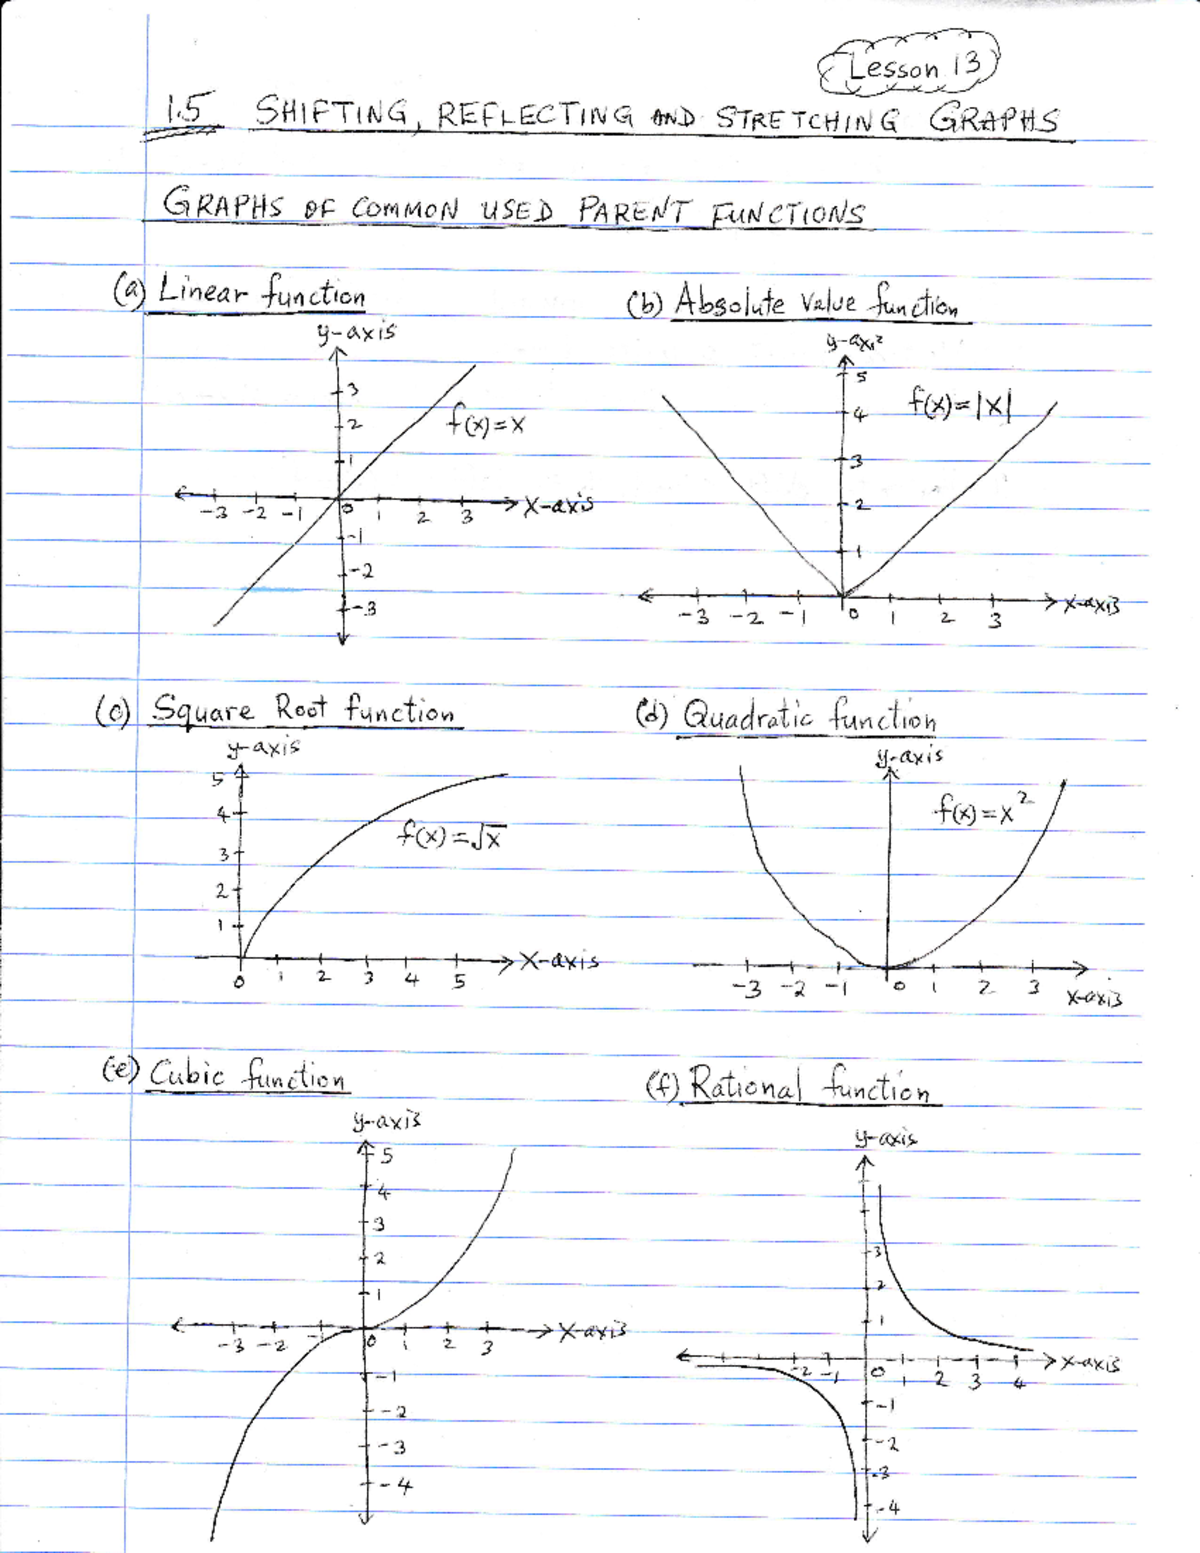 Lesson 13
1.5 SHIFTING, REFLECTING AND STRETCHING GRAPHS
GRAPHS OF COMMON USED PARENT FUNCTIONS
(a) Linear function
y-axis
3
2
1
f(x)=x
-3 -2 -1 0 1 2 3 X-axis
-1
-2
-3
(b) Absolute Value function
y-axis
5
4
f(x)=|x|
3
2
1
-3 -2 -1 0 1 2 3 X-axis
(c) Square Root function
y-axis
5
4
f(x)=√x
3
2
1
0 1 2 3 4 5 X-axis
(d) Quadratic function
y-axis
f(x)=x²
-3 -2 -1 0 1 2 3 X-axis
(e) Cubic function
y-axis
5
4
3
2
1
-3 -2 -1 0 1 2 3 X-axis
-1
-2
-3
-4
(f) Rational function
y-axis
3
2
1
-2 -1 0 1 2 3 4 X-axis
-1
-2
-3
-4